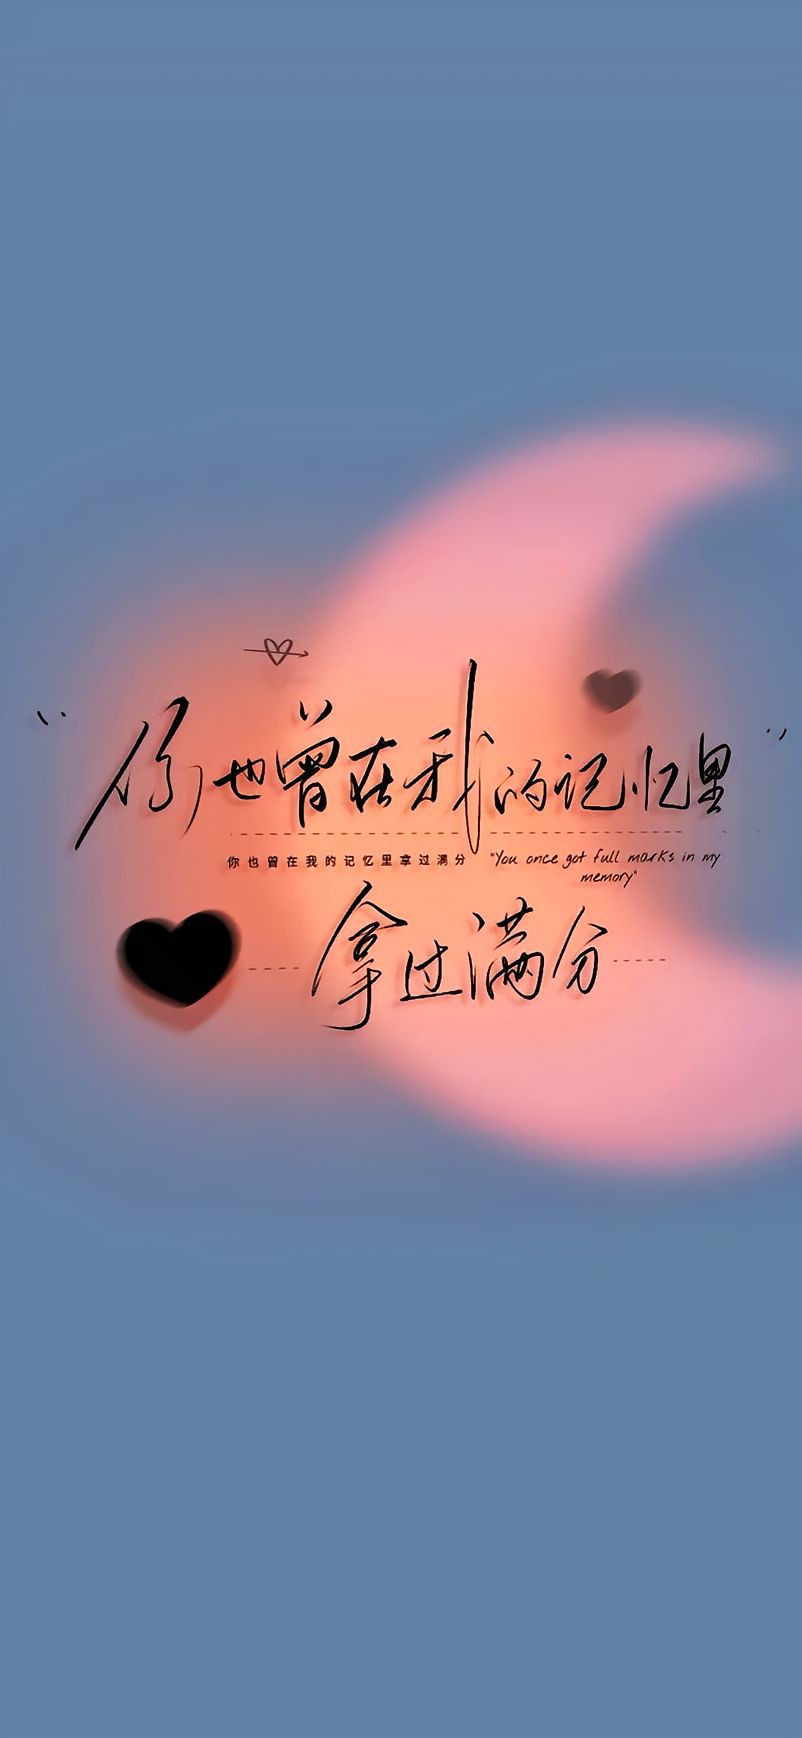 “你也曾在我的记忆里
你也曾在我的记忆里拿过满分 "You once got full marks in my
memory"
拿过满分